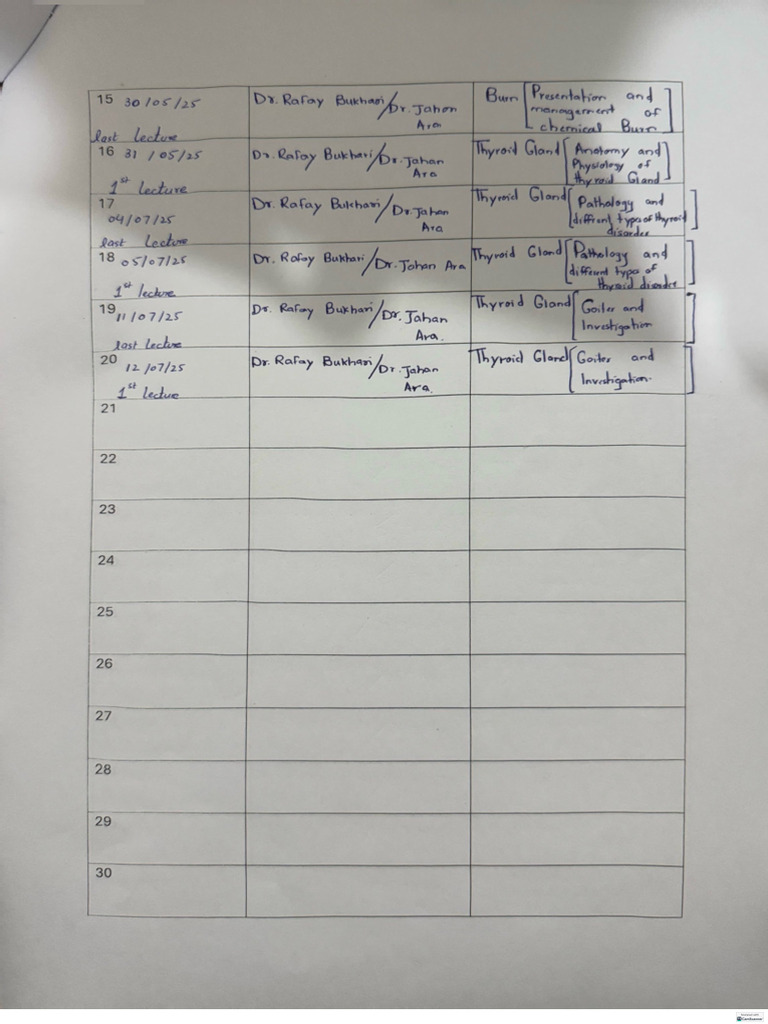 15 30/05/25 Dr. Rafay Bukhari/Dr. Jahan Ara Burn [Presentation and management of chemical Burn]
last lecture
16 31/05/25 Dr. Rafay Bukhari/Dr. Jahan Ara Thyroid Gland [Anatomy and Physiology of thyroid Gland]
1st lecture
17 04/07/25 Dr. Rafay Bukhari/Dr. Jahan Ara Thyroid Gland [Pathology and diffrent typs of thyroid disorder]
last Lecture
18 05/07/25 Dr. Rafay Bukhari/Dr. Jahan Ara Thyroid Gland [Pathology and different typs of thyroid disordre]
1st lecture
19 11/07/25 Dr. Rafay Bukhari/Dr. Jahan Ara. Thyroid Gland [Goiter and Investigation]
last Lecture
20 12/07/25 Dr. Rafay Bukhari/Dr. Jahan Ara. Thyroid Gland [Goiter and Investigation.]
1st lecture
21
22
23
24
25
26
27
28
29
30
CamScanner